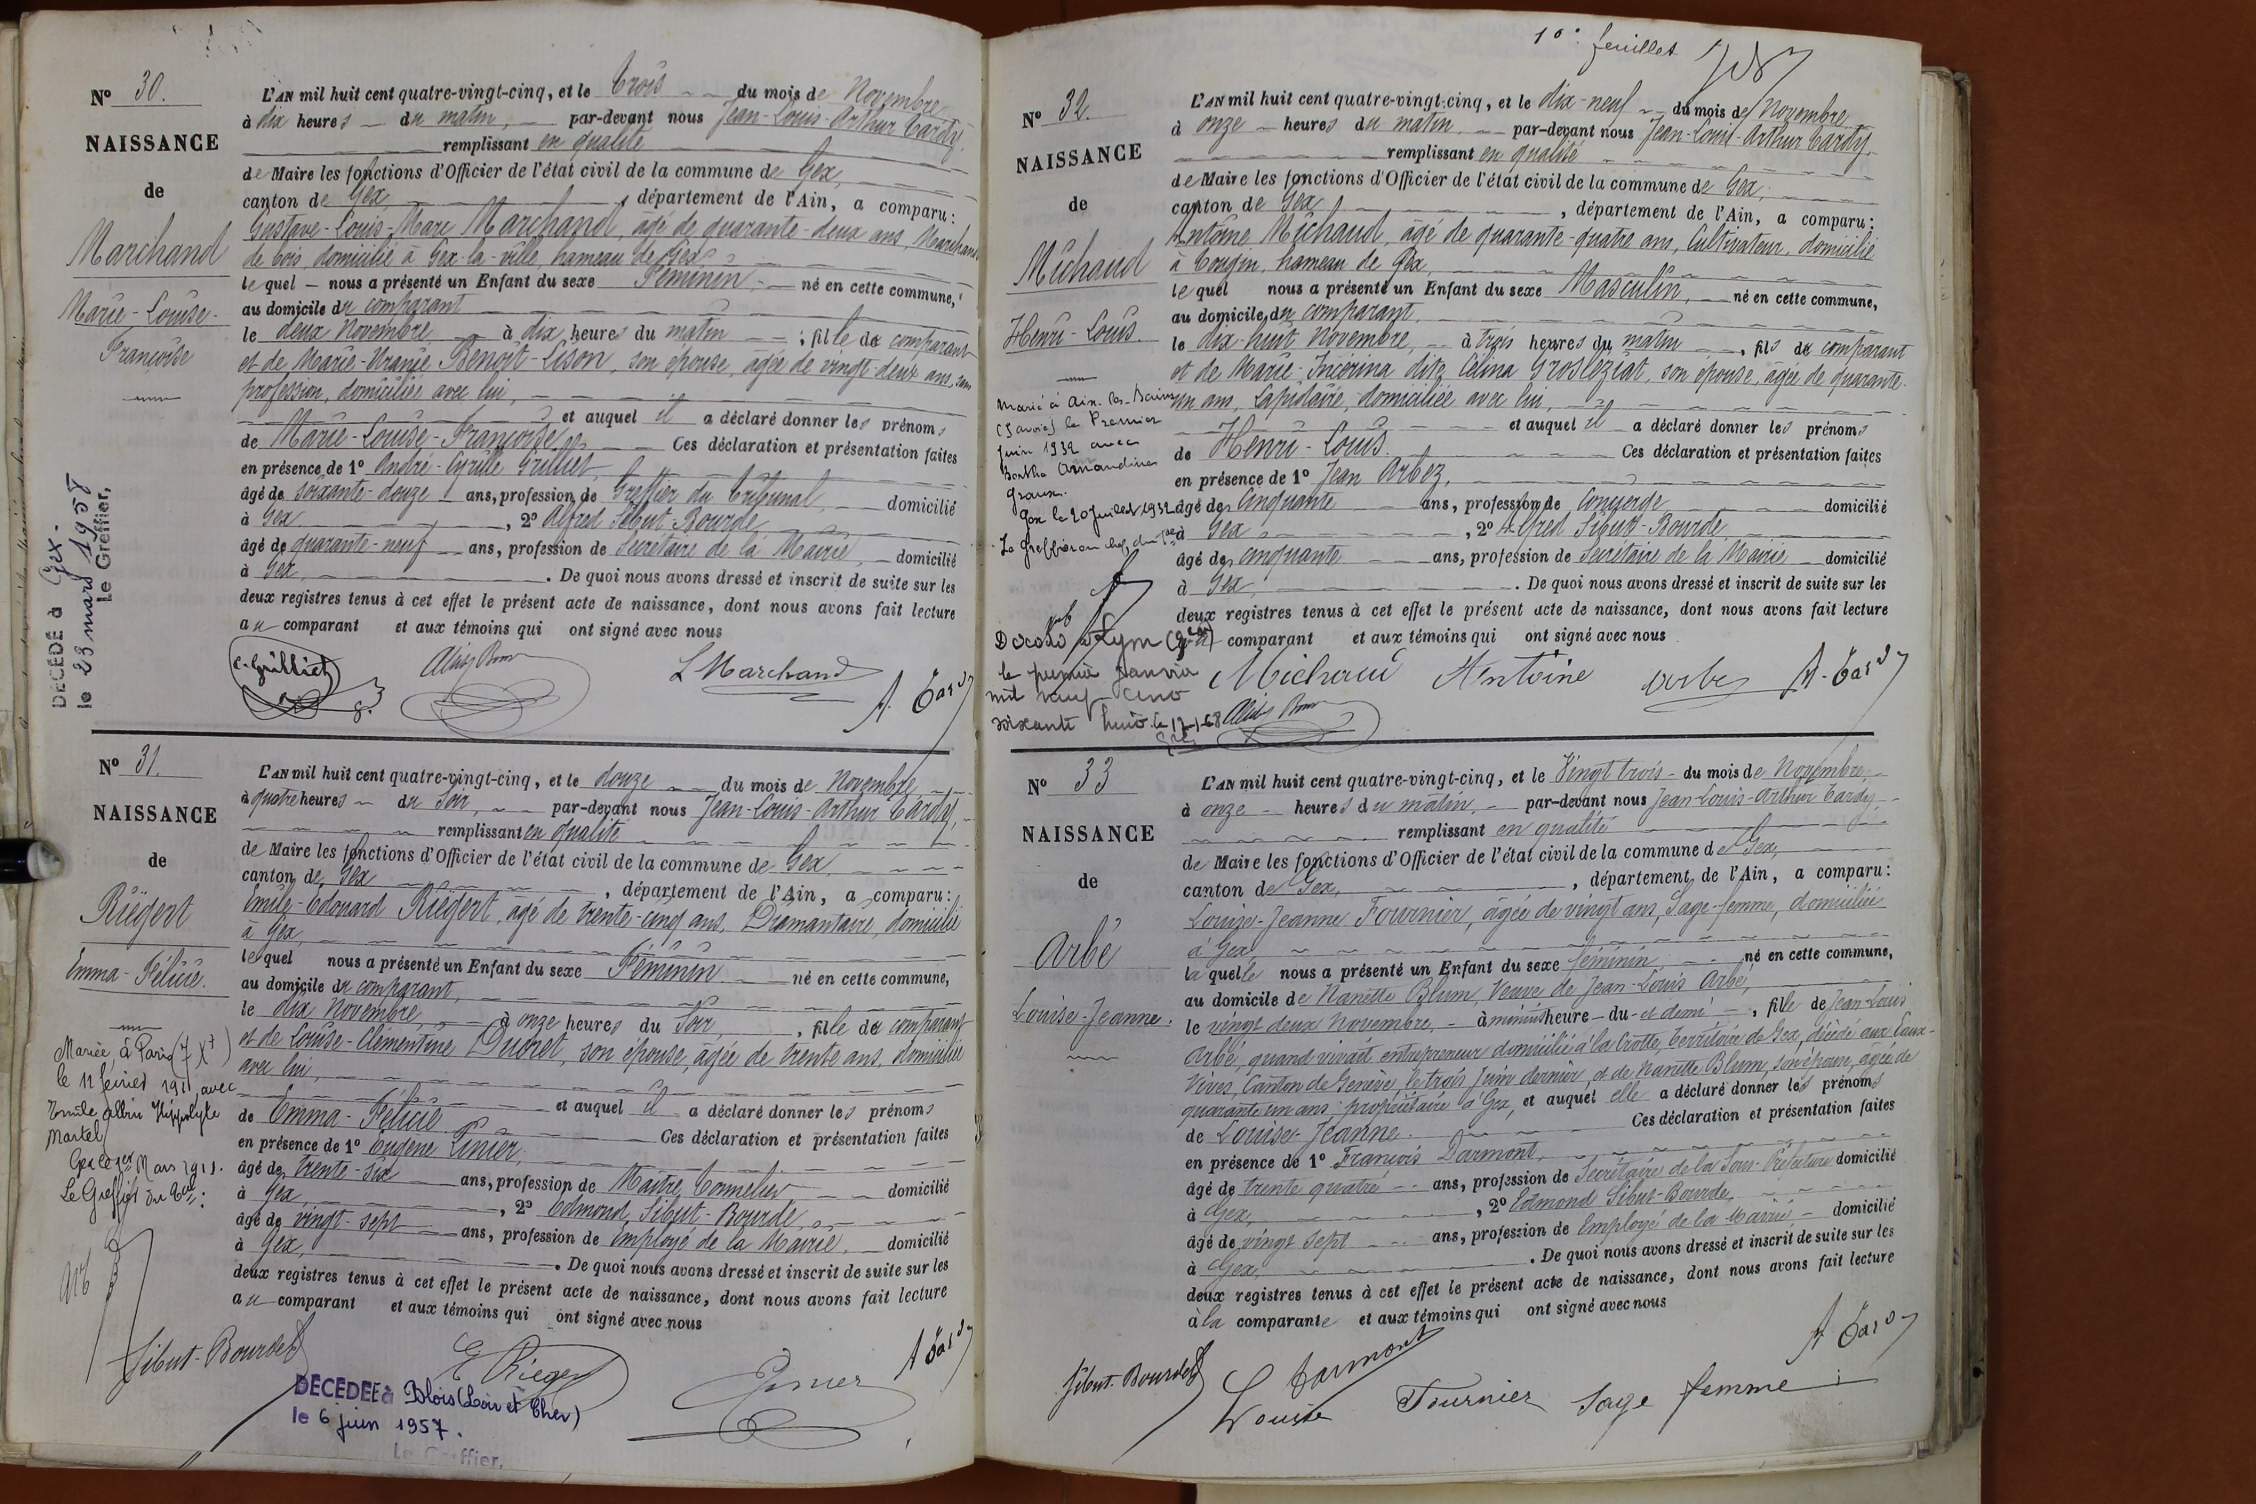 N° 30.
NAISSANCE
de
Marchand
Marie-Louise-
Françoise
DÉCÉDÉ à Gex-
le 23 mars 1958
Le Greffier,
L'AN mil huit cent quatre-vingt-cinq, et le trois du mois de Novembre
à dix heures du matin, par-devant nous Jean-Louis-Arthur Tardy,
remplissant en qualité
de Maire les fonctions d'Officier de l'état civil de la commune de Gex,
canton de Gex, département de l'Ain, a comparu:
Gustave-Louis-Marc Marchand, âgé de quarante-deux ans, Marchand
de bois, domicilié à Gex-la-ville, hameau de Gex
lequel nous a présenté un Enfant du sexe Féminin, né en cette commune,
au domicile du comparant
le deux Novembre à dix heures du matin ; fille de comparant
et de Marie-Uranie Benoit-Lison, son épouse, âgée de vingt-deux ans, sans
profession, domiciliée avec lui,
et auquel il a déclaré donner les prénoms
de Marie-Louise-Françoise Ces déclaration et présentation faites
en présence de 1° André-Cyrille Grilliet,
âgé de soixante-douze ans, profession de Greffier du tribunal, domicilié
à Gex, 2° Alfred Sibut-Bourde
âgé de quarante-neuf ans, profession de Secrétaire de la Mairie, domicilié
à Gex, . De quoi nous avons dressé et inscrit de suite sur les
deux registres tenus à cet effet le présent acte de naissance, dont nous avons fait lecture
au comparant et aux témoins qui ont signé avec nous
C. Grilliet L Marchand A. Tardy
N° 31.
NAISSANCE
de
Riegert
Emma-Félicie.
Mariée à Paris (7
le 11 février 1911, avec
Emile Albin Hippolyte
Martel
Gex le Mars 1911.
Le Greffier du
L'AN mil huit cent quatre-vingt-cinq, et le douze du mois de Novembre
à quatre heures du Soir, par-devant nous Jean-Louis-Arthur Tardy,
remplissant en qualité
de Maire les fonctions d'Officier de l'état civil de la commune de Gex,
canton de Gex, département de l'Ain, a comparu:
Emile-Edouard Riegert, âgé de trente-cinq ans, Diamantaire, domicilié
à Gex,
lequel nous a présenté un Enfant du sexe Féminin né en cette commune,
au domicile du comparant,
le dix Novembre, à onze heures du Soir, fille de comparant
et de Louise-Clémentine Ducret, son épouse, âgée de trente ans, domiciliée
avec lui,
et auquel il a déclaré donner les prénoms
de Emma-Félicie. Ces déclaration et présentation faites
en présence de 1° Eugène Pinier,
âgé de trente-six ans, profession de Maître Tonnelier domicilié
à Gex, 2° Edmond Sibut-Bourde,
âgé de vingt-sept ans, profession de Employé de la Mairie. domicilié
à Gex, . De quoi nous avons dressé et inscrit de suite sur les
deux registres tenus à cet effet le présent acte de naissance, dont nous avons fait lecture
au comparant et aux témoins qui ont signé avec nous
Sibut-Bourde E Rieger Pinier A Tardy
DÉCÉDÉE à Blois (Loir et Cher)
le 6 juin 1957.
Le Greffier,
10e feuillet
N° 32.
NAISSANCE
de
Michaud
Henri-Louis.
Marié à Aix-les-Bains
(Savoie) le Premier
Juin 1932 avec
Bertha Amandine
Gex le 20 Juillet 1932
Le Greffier en chef,
Décédé
le premier Janvier
mil neuf cent
soixante huit. le 17-1-68
L'AN mil huit cent quatre-vingt-cinq, et le dix-neuf du mois de Novembre
à onze heures du matin par-devant nous Jean-Louis-Arthur Tardy,
remplissant en qualité
de Maire les fonctions d'Officier de l'état civil de la commune de Gex,
canton de Gex, département de l'Ain, a comparu:
Antoine Michaud, âgé de quarante-quatre ans, Cultivateur, domicilié
à Tougin, hameau de Gex,
lequel nous a présenté un Enfant du sexe Masculin, né en cette commune,
au domicile du comparant,
le dix-huit Novembre, à trois heures du matin, fils de comparant
et de Marie- dite Célina Grosléziat, son épouse, âgée de quarante-
un ans, Lapidaire, domiciliée avec lui,
et auquel il a déclaré donner les prénoms
de Henri-Louis. Ces déclaration et présentation faites
en présence de 1° Jean Arbez,
âgé de Cinquante ans, profession de Concierge domicilié
à Gex, 2° Alfred Sibut-Bourde,
âgé de cinquante ans, profession de Secrétaire de la Mairie domicilié
à Gex, . De quoi nous avons dressé et inscrit de suite sur les
deux registres tenus à cet effet le présent acte de naissance, dont nous avons fait lecture
au comparant et aux témoins qui ont signé avec nous
Michaud Antoine Arbez A. Tardy
N° 33
NAISSANCE
de
Arbé
Louise-Jeanne.
L'AN mil huit cent quatre-vingt-cinq, et le Vingt trois du mois de Novembre,
à onze heures du matin, par-devant nous Jean-Louis-Arthur Tardy,
remplissant en qualité
de Maire les fonctions d'Officier de l'état civil de la commune de Gex,
canton de Gex, département de l'Ain, a comparu:
Louise-Jeanne Fournier, âgée de vingt ans, Sage-femme, domiciliée
à Gex,
laquelle nous a présenté un Enfant du sexe féminin né en cette commune,
au domicile de Nanette Blum, Veuve de Jean-Louis Arbé,
le vingt deux Novembre, à minuit heure du et demi, fille de Jean-Louis
Arbé, quand vivait entrepreneur domicilié à la Crotte, territoire de Gex, décédé aux Eaux-
Vives, Canton de Genève, le trois Juin dernier, et de Nanette Blum, son épouse, âgée de
quarante un ans propriétaire à Gex, et auquel elle a déclaré donner les prénoms
de Louise-Jeanne. Ces déclaration et présentation faites
en présence de 1° François Darmont,
âgé de trente quatre ans, profession de Secrétaire de la Sous-Préfecture domicilié
à Gex, 2° Edmond Sibut-Bourde,
âgé de vingt sept ans, profession de Employé de la Mairie domicilié
à Gex, . De quoi nous avons dressé et inscrit de suite sur les
deux registres tenus à cet effet le présent acte de naissance, dont nous avons fait lecture
à la comparante et aux témoins qui ont signé avec nous
Sibut-Bourde Darmont A Tardy
Louise Fournier Sage femme